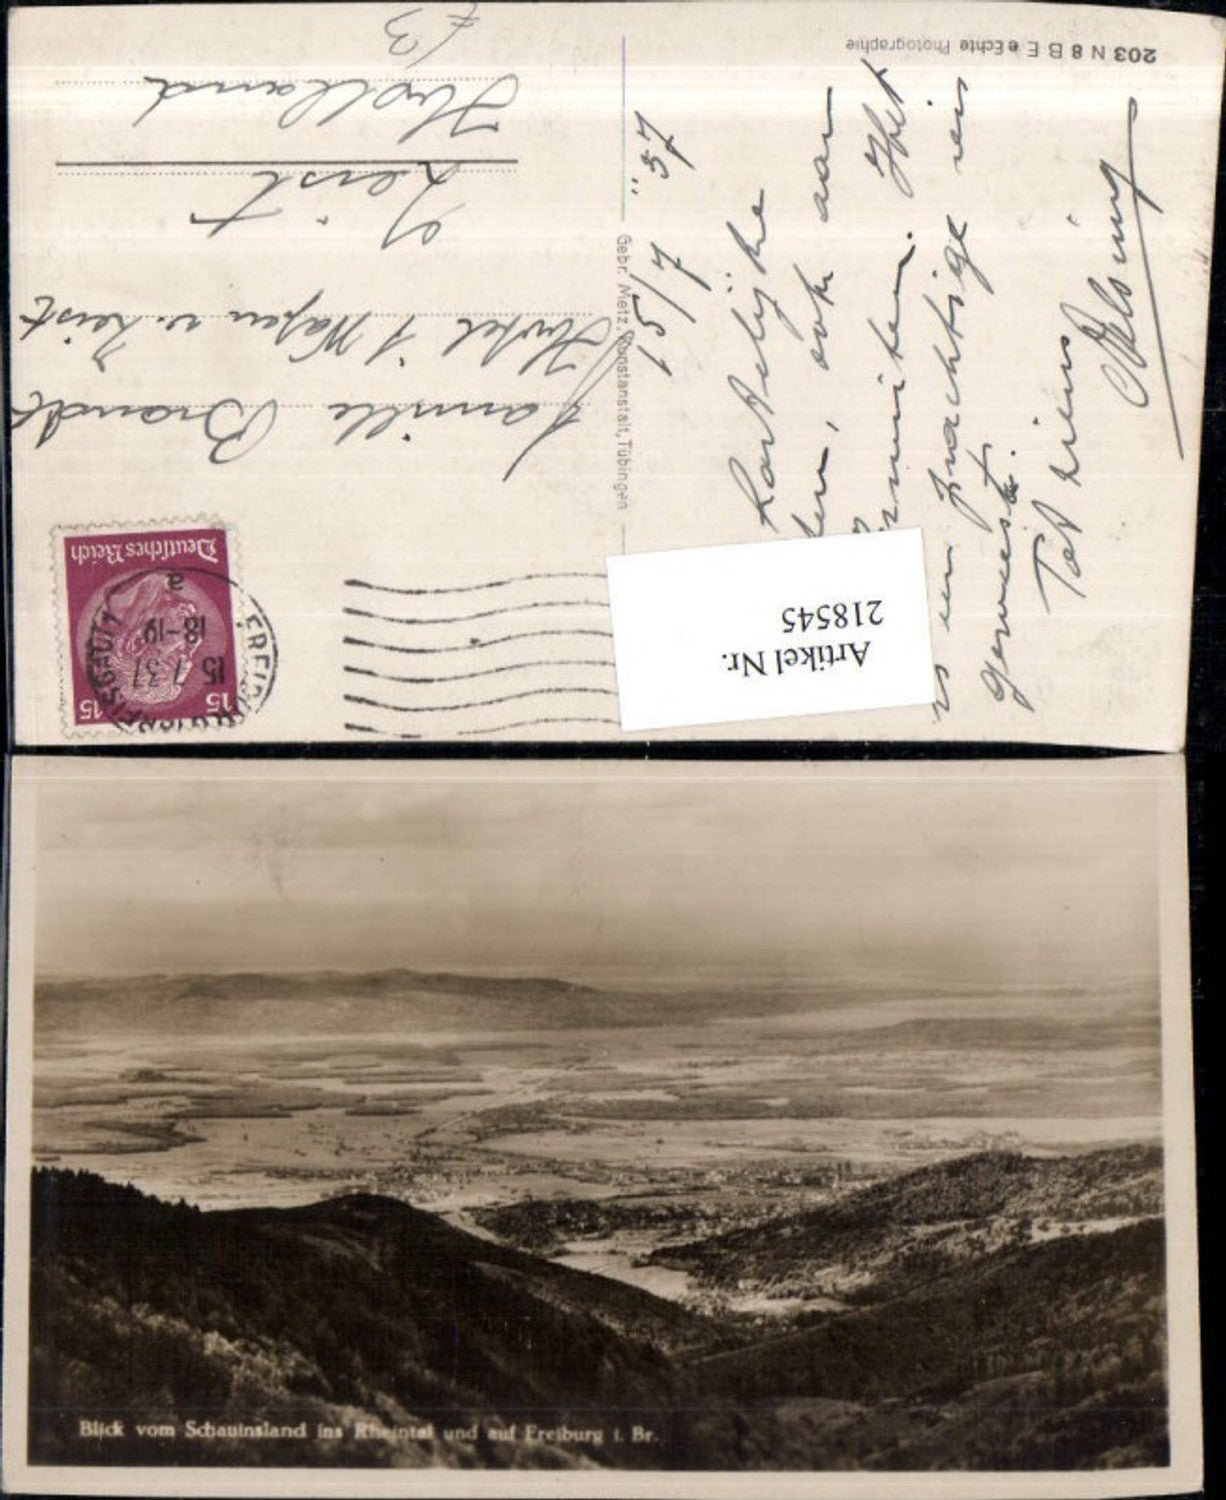 203 N 8 B E e Echte Photographie
15/7 "37
Hartelijke
, ook aan
. Het
is een prachtige reis
geweest.
Tot ziens
Gebr. Metz, Kunstanstalt, Tübingen
Artikel Nr.
218545
Deutsches Reich
15 15
FREIBURG (BREISGAU) 1
15.7.37
18-19
a
Familie Brandt
Hotel 't Wapen v. Zeist
Zeist
Holland
Blick vom Schauinsland ins Rheintal und auf Freiburg i. Br.